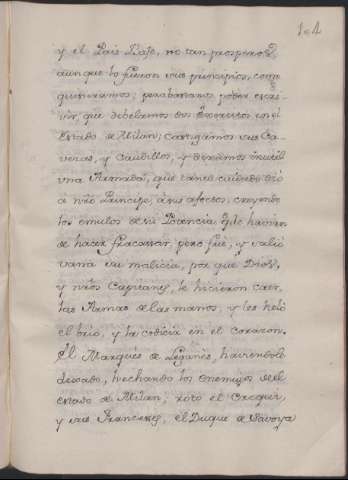 104
y el Pais Bajo, no tan prosperos,
aunque lo fueron sus principios, como
quisieramos; pero bastanos poder escri-
vir, que debelamos dos Exercitos en el
Estado de Milan; castigamos sus Ca-
vezas, y Caudillos, y hizimos inutil
vna Armada, que tanto cuidado dió
a nr̃o Principe, a sus afectos, creyendo
los emulos de su Potencia q̃ le havian
de hacer fracassar, pero fue, y salió
vana su malicia, por que Dios,
y nr̃os Capitanes, le hicieron caer
las Armas de las manos, y les heló
el brio, y la codicia en el corazon.
El Marques de Leganes, haviendole
deseado, hechando los enemigos del
estado de Milan; rotó el Crequi,
y sus Franceses, el Duque de Savoya